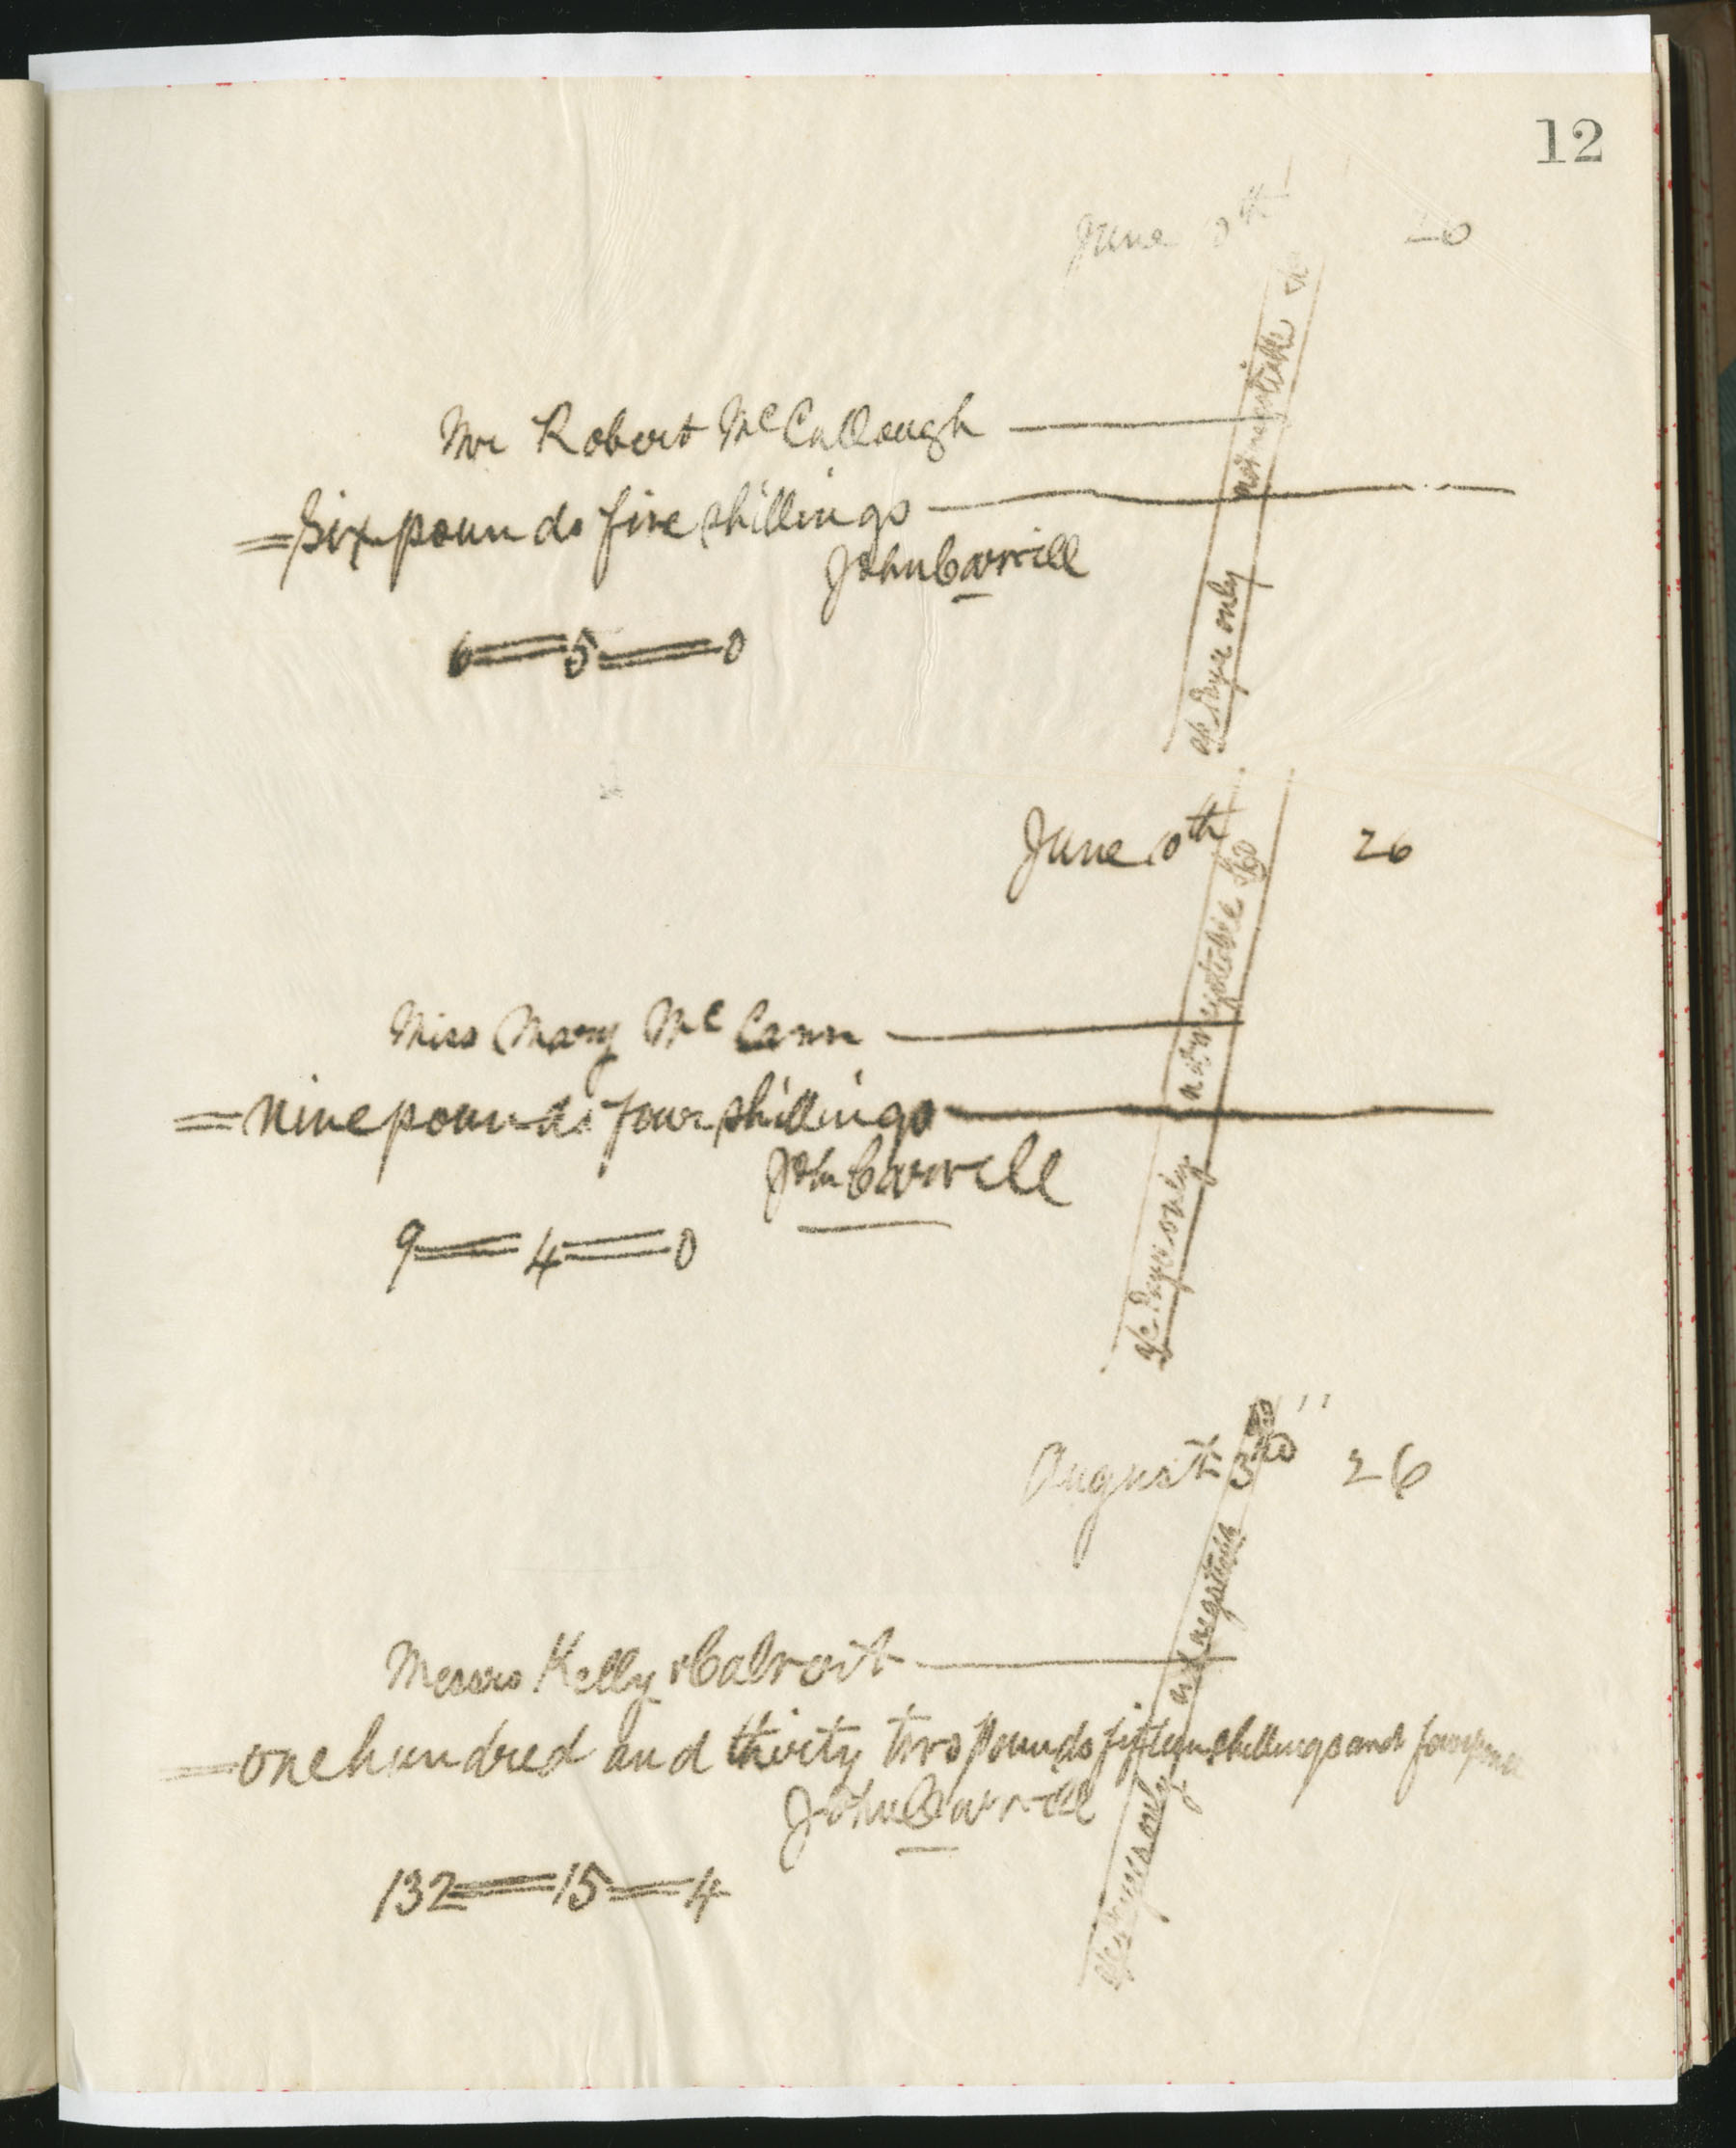 12
June 10th 26
Mr Robert McCullough
= Six pounds five shillings
John Carvill
6 = 5 = 0
not negotiable
a/c Payee only
June 10th 26
Miss Mary McCann
= nine pounds four shillings
John Carvill
9 = 4 = 0
not negotiable
a/c Payee only
August 3rd 26
Messrs Kelly &
= one hundred and thirty two pounds fifteen shillings and fourpence
John Carvill
132 = 15 = 4
not negotiable
a/c Payees only